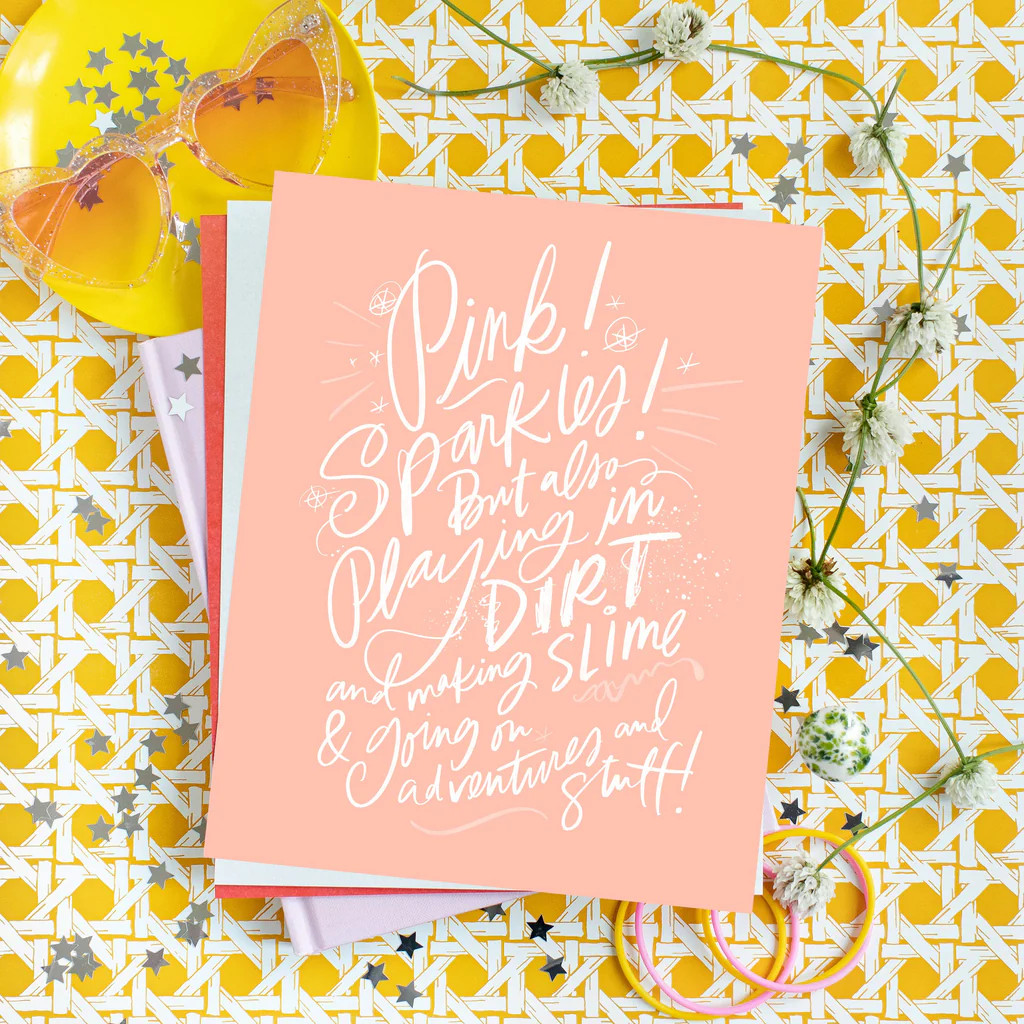 Pink!
Sparkles!
But also
Playing in
DIRT
and making SLIME
& going on
adventures and
stuff!